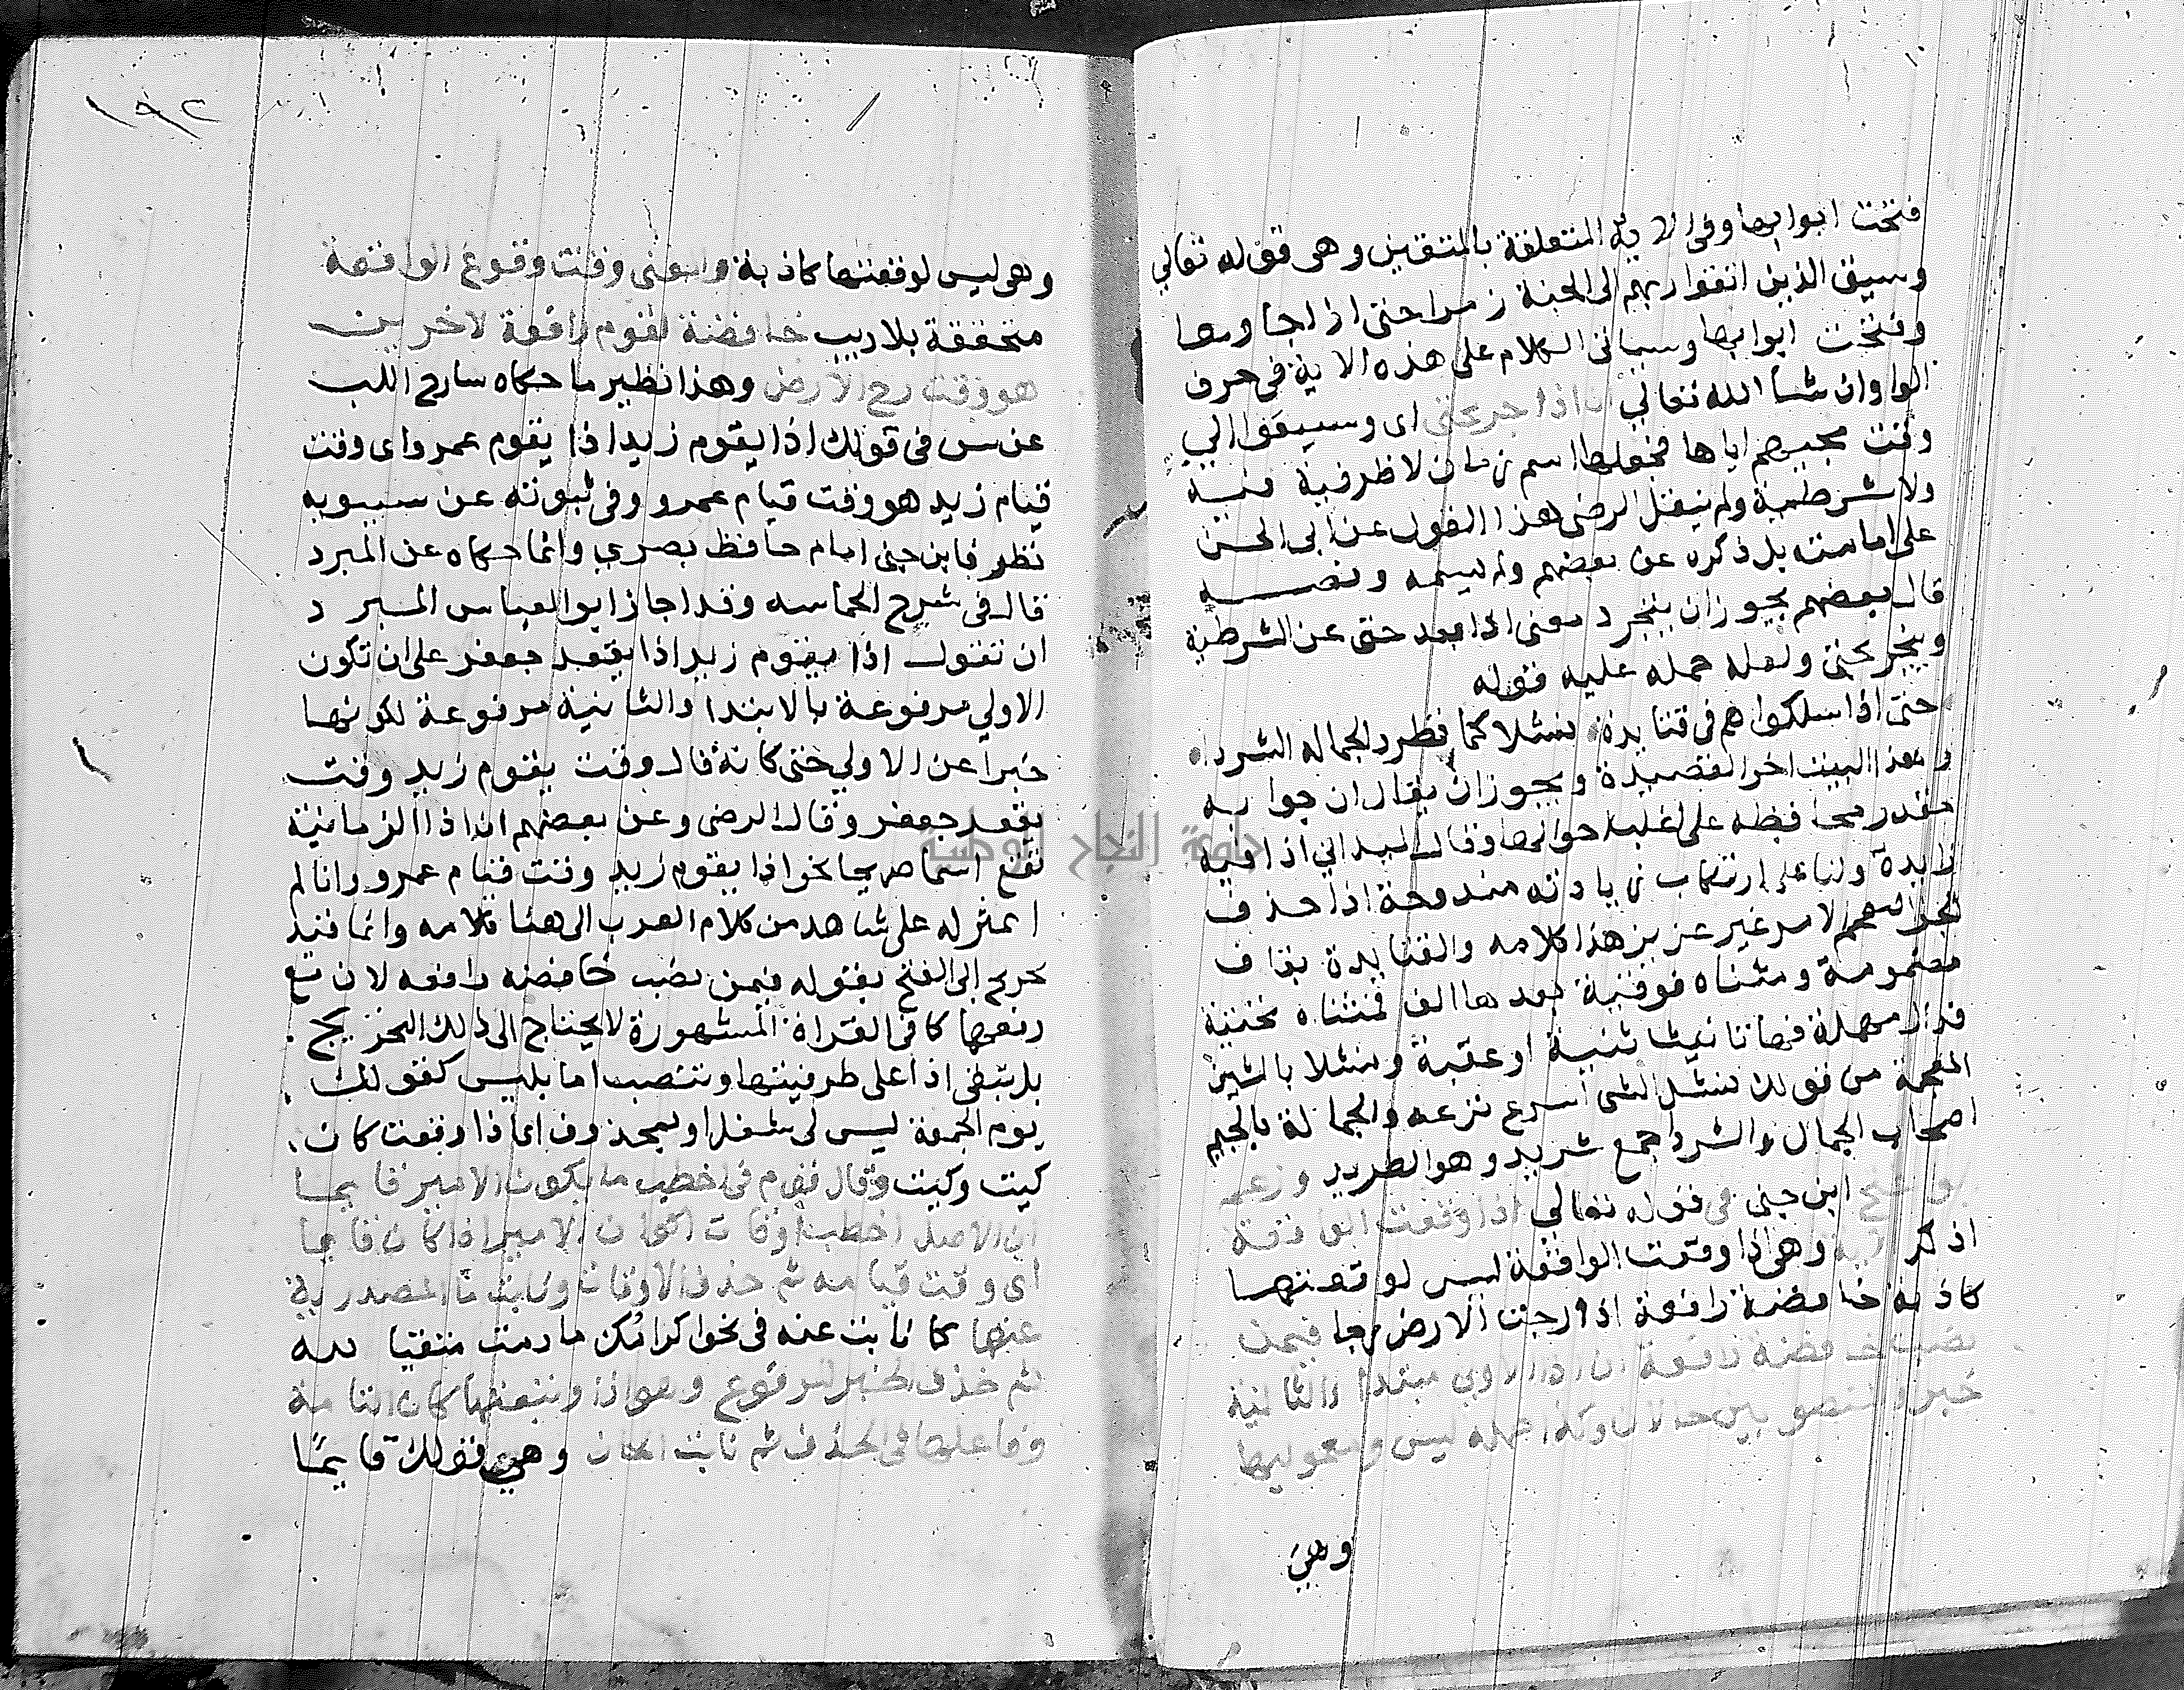 فتحت ابوابها وفى الاية المتعلقة بالمتقين وهى قوله تعالي
وسيق الذين اتقوا ربهم الى الجنة زمرا حتى اذا جاوها
وفتحت ابوابها وسياتى الكلام على هذه الاية فى حرف
الواو ان شأ الله تعالي ان اذا جر بحتى اى وسيقوا الي
وقت مجيهم اياها فجعلها اسم زمان لا ظرفية فيه
ولا شرطية ولم ينقل الرضى هذا القول عن ابى الحسن
على امامته بل ذكره عن بعضهم ولم يسمه ونصه
قال بعضهم يجوز ان ينجرد معنى اذا بعد حتى عن الشرطية
وينجر بحتى ولعله حمله عليه قوله
حتى اذا سلكوا هم فى قتايدة شلا كما تطرد الجماله الشردا
وهذا البيت اخر القصيدة ويجوز ان يقال ان جوابه
مقدر محافظة على اغلب احوالها وقال الميدانى اذا فيه
زايدة ولنا على ارتكاب زيادته مندوحة اذا حذف
الجزا لتفخيم الامر غير عزيز هذا كلامه والقتايدة بقاف
مضمومة ومثناه فوقية بعدها الف فمثناه تحتية
فدال مهملة فها تانيث ثنية او عقبة وشلا بالشين
المعجمة من قولك شل الشى اسرع نزعه والجمالة بالجيم
اصحاب الجمال والشرد جمع شريد وهو الطريد وزعم
ابو الفتح ابن جنى فى قوله تعالي اذا وقعت الواقعة
اذكر الاية وهى اذا وقعت الواقعة ليس لوقعتها
كاذبة خافضة رافعة اذا رجت الارض رجا فيمن
نصب خافضة رافعة ان اذا الاولي مبتدا والثانية
خبر والمنصوبين حالان وكذا جملة ليس ومعموليها
وهى
١٩٢
وهى ليس لوقعتها كاذبة والمعنى وقت وقوع الواقعة
متحققة بلا ريب خافضة لقوم رافعة لاخرين
هو وقت رج الارض وهذا نظير ما حكاه شارح اللب
عن س فى قولك اذا يقوم زيد اذا يقوم عمرو اى وقت
قيام زيد هو وقت قيام عمرو وفى ثبوته عن سيبويه
نظر فابن جنى امام حافظ بصري وانما حكاه عن المبرد
قال فى شرح الحماسه وقد اجاز ابو العباس المبرد
ان تقول اذا يقوم زيد اذا يقعد جعفر على ان تكون
الاولي مرفوعة بالابتدا والثانية مرفوعة لكونها
خبرا عن الاولي حتى كانه قال وقت يقوم زيد وقت
يقعد جعفر وقال الرضى وعن بعضهم ان اذا الزمانية
تقع اسما صريحا نحو اذا يقوم زيد وقت قيام عمرو وانا لم
اعثر له على شاهد من كلام العرب الى هنا كلامه وانما قيد
تخريج ابى الفتح بقوله فيمن نصب خافضه رافعه لان مع
رفعها كما فى القراة المشهورة لا يحتاج الى ذلك التخريج
بل تبقى اذا على ظرفيتها وتنتصب اما بليس كقولك
يوم الجمعة ليس لى شغل او بمحذوف اى اذا وقعت كان
كيت وكيت وقال قوم فى اخطب ما يكون الامير قايما
ان الاصل اخطب اوقات اكوان الامير اذا كان قايما
اى وقت قيامه ثم حذفت الاوقات ونابت ما المصدرية
عنها كما نابت عنه فى نحو اكرامك ما دمت متقيا لله
ثم حذف الخبر المرفوع وهو اذا وتبعتها كان التامة
وفاعلها فى الحذف ثم نابت الحال وهى قولك قايمًا
جامعة النجاح الوطنية